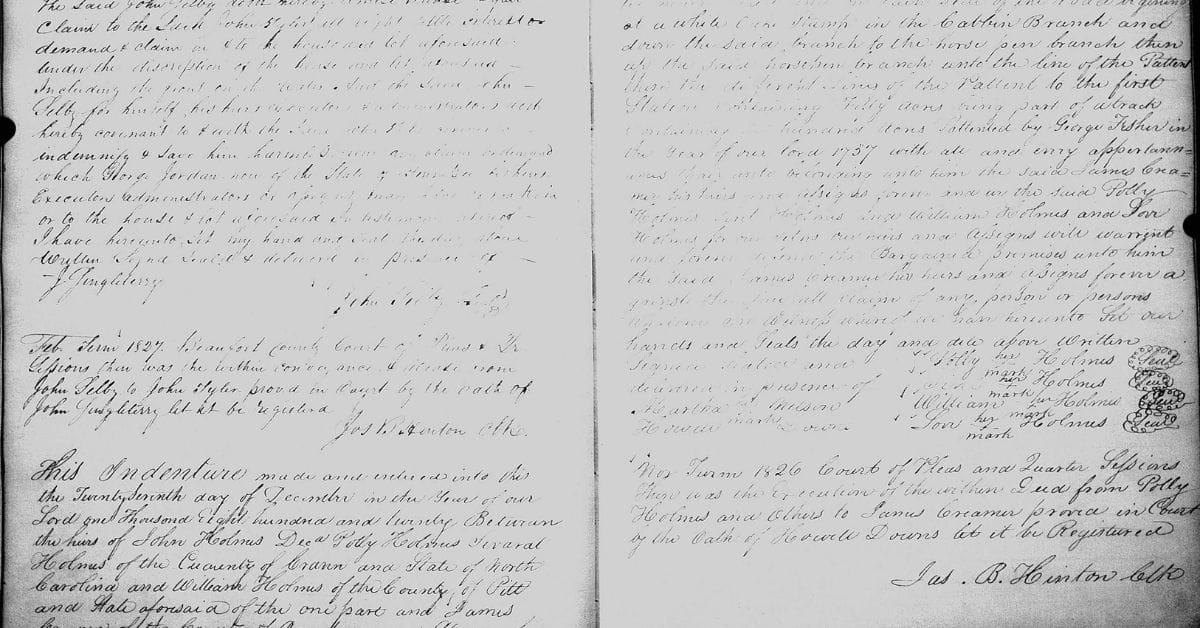 The said John Selby doth hereby
Claim to the said John Tyler all right title interest or
demand & claim in & to the house and lot aforesaid
Under the discription of the house and lot aforesaid
Including the front on the water And the said John
Selby for himself his heirs Executors & administrators doth
hereby covenant to & with the said John
indemnify & save him harmless from any claim or demand
which George Jordan now of the State of his heirs
Executors administrators or assigns may have
or to the house & lot aforesaid In testimony whereof
I have hereunto Set my hand and Seal the day above
Written Signd Seald & delivered in presence of
J Singleterry
John Selby Seal
Feb. Term 1827. Beaufort County Court of Pleas & Qr
Sessions then was the within conveyance & release from
John Selby to John Tyler proved in Court by the oath of
John Singleterry let it be registered
Jos B Hinton Clk.
This Indenture made and entered into this
the Twenty seventh day of December in the Year of our
Lord one Thousand Eight hundred and twenty Between
the heirs of John Holmes Decd Polly Holmes
Holmes of the County of Craven and State of North
Carolina and William Holmes of the County of Pitt
and State aforesaid of the one part and James
of the road begining
at a white Oak Stump in the Cabbin Branch and
down the said branch to the horse pen branch then
up the said horsepen branch unto the line of the Pattent
then the different lines of the Pattent to the first
Station Containing Fifty acres being part of a track
Containing hundred acres Pattented by George Fisher in
the year of our lord 1757 with all and evry appertann=
unto belonging unto him the said James Crea=
mer his heirs and assigns forever and we the said Polly
Holmes Holmes and William Holmes and Lovr
Holmes for our selves our heirs and assigns will warrent
and forever defend the Bargained premises unto him
the said James Creamer his heirs and assigns forever a
gainst the Claim of any person or persons
Whatsoever In Witness whereof we have hereunto Set our
hands and Seals the day and date above Written
Signed Sealed and Polly her mark Holmes Seal
delivered in presence of her mark Holmes Seal
Martha Wilson William Holmes Seal
Howell Downs Lovr her mark Holmes Seal
Nov Turm 1826 Court of Pleas and Quarter Sessions
then was the Execution of the within Deed from Polly
Holmes and Others to James Creamer provid in Court
by the Oath of Howell Downs let it be Registured
Jas. B. Hinton Clk